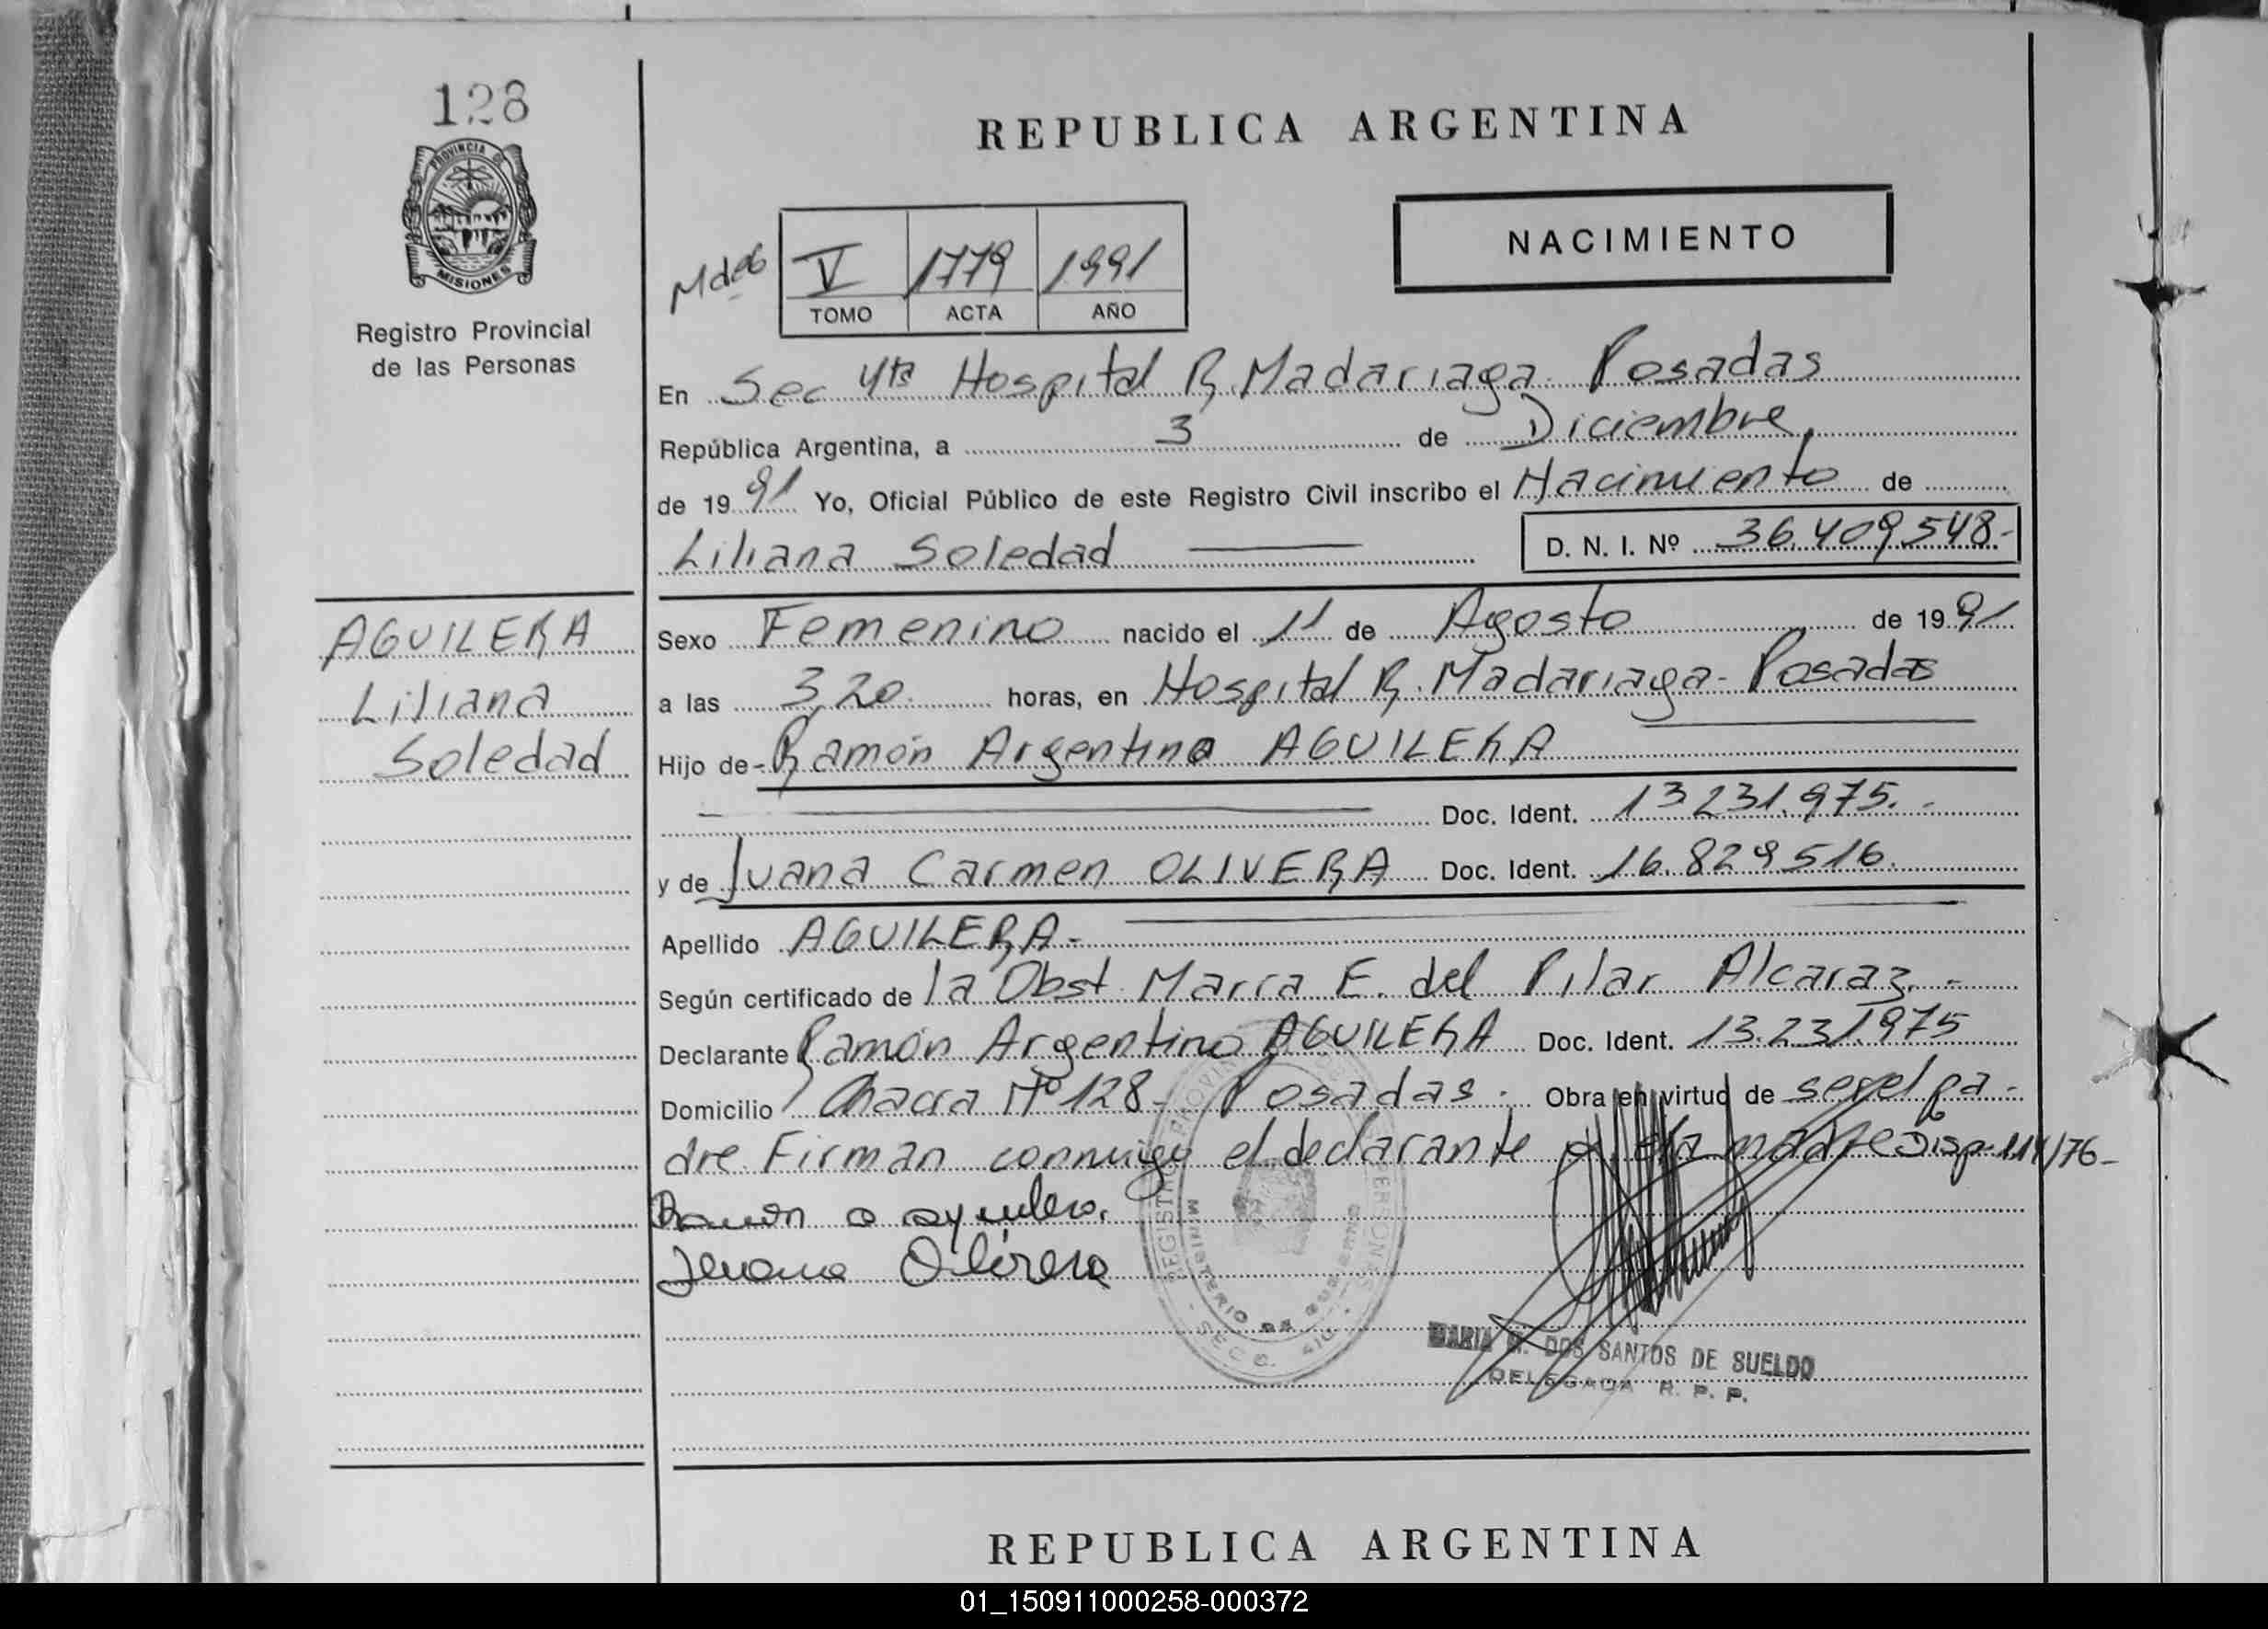 128
PROVINCIA DE
MISIONES
Registro Provincial
de las Personas
REPUBLICA ARGENTINA
NACIMIENTO
V 1779 1991
TOMO ACTA AÑO
En Sec 4ta Hospital R. Madariaga. Posadas
República Argentina, a 3 de Diciembre
de 1991 Yo, Oficial Público de este Registro Civil inscribo el Nacimiento de
Liliana Soledad D. N. I. Nº 36.409.548.-
AGUILERA
Liliana
Soledad
Sexo Femenino nacido el 11 de Agosto de 1991
a las 3,20. horas, en Hospital R. Madariaga - Posadas
Hijo de - Ramón Argentino AGUILERA
Doc. Ident. 13.231.975.-
y de Juana Carmen OLIVERA Doc. Ident. 16.829.516.
Apellido AGUILERA -
Según certificado de la Obst. María E. del Pilar Alcaraz.-
Declarante Ramón Argentino AGUILERA Doc. Ident. 13.231.975
Domicilio Chacra Nº 128 - Posadas. Obra en virtud de ser el pa-
dre. Firman conmigo el declarante y la madre Disp. 114/76-
Ramon a aguilera.
Juana Olivera
MINISTERIO DE
MARIA DOS SANTOS DE SUELDO
DELEGADA R. P. P.
REPUBLICA ARGENTINA
01_150911000258-000372